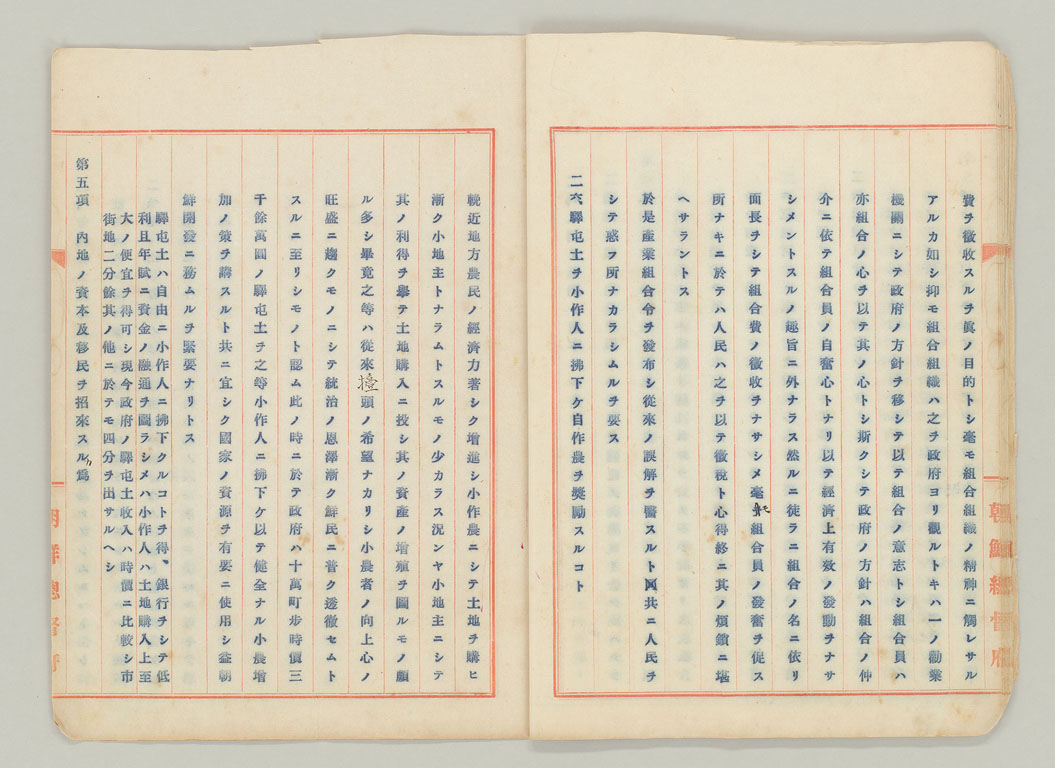 費ヲ徵收スルヲ眞ノ目的トシ毫モ組合組織ノ精神ニ觸レサル
アルカ如シ抑モ組合組織ハ之ヲ政府ヨリ觀ルトキハ一ノ勸業
機關ニシテ政府ノ方針ヲ移シテ以テ組合ノ意志トシ組合員ハ
亦組合ノ心ヲ以テ其ノ心トシ斯クシテ政府ノ方針ハ組合ノ仲
介ニ依テ組合員ノ自奮心トナリ以テ經濟上有效ノ發動ヲナサ
シメントスルノ趣旨ニ外ナラス然ルニ徒ラニ組合ノ名ニ依リ
面長ヲシテ組合費ノ徵收ヲナサシメ毫モ組合員ノ發奮ヲ促ス
所ナキニ於テハ人民ハ之ヲ以テ徵稅ト心得終ニ其ノ煩鎖ニ堪
ヘサラントス
於是產業組合令ヲ發布シ從來ノ誤解ヲ醫スルト共ニ人民ヲ
シテ惑フ所ナカラシムルヲ要ス
二六、驛屯土ヲ小作人ニ拂下ケ自作農ヲ奬勵スルコト
輓近地方農民ノ經濟力著シク增進シ小作農ニシテ土地ヲ購ヒ
漸ク小地主トナラムトスルモノ少カラス況ンヤ小地主ニシテ
其ノ利得ヲ擧テ土地購入ニ投シ其ノ資產ノ增殖ヲ圖ルモノ頗
ル多シ畢竟之等ハ從來擡頭ノ希望ナカリシ小農者ノ向上心ノ
旺盛ニ趨クモノニシテ統治ノ恩澤漸ク鮮民ニ普ク透徹セムト
スルニ至リシモノト認ム此ノ時ニ於テ政府ハ十萬町步時價三
千餘萬圓ノ驛屯土ヲ之等小作人ニ拂下ケ以テ健全ナル小農增
加ノ策ヲ講スルト共ニ宜シク國家ノ資源ヲ有要ニ使用シ益朝
鮮開發ニ務ムルヲ緊要ナリトス
驛屯土ハ自由ニ小作人ニ拂下クルコトヲ得、銀行ヲシテ低
利且年賦ニ資金ノ融通ヲ圖ラシメハ小作人ハ土地購入上至
大ノ便宜ヲ得可シ現今政府ノ驛屯土收入ハ時價ニ比較シ市
街地二分餘其ノ他ニ於テモ四分ヲ出サルヘシ
第五項 內地ノ資本及移民ヲ招來スルノ爲
朝鮮總督府
朝鮮總督府